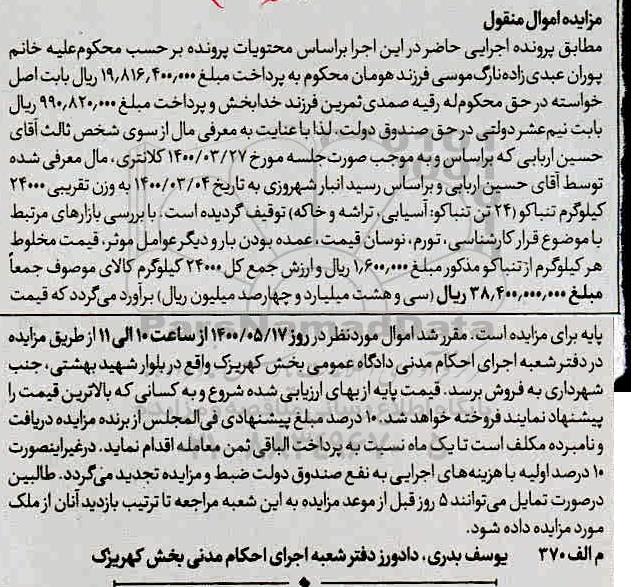 مزایده اموال منقول
مطابق پرونده اجرایی حاضر در این اجرا براساس محتویات پرونده بر حسب محکوم‌علیه خانم
پوران عبدی‌زاده‌نارگ‌موسی فرزند هومان محکوم به پرداخت مبلغ ۱۹,۸۱۶,۴۰۰,۰۰۰ ریال بابت اصل
خواسته در حق محکوم‌له رقیه صمدی‌ثمرین فرزند خدابخش و پرداخت مبلغ ۹۹۰,۸۲۰,۰۰۰ ریال
بابت نیم‌عشر دولتی در حق صندوق دولت، لذا با عنایت به معرفی مال از سوی شخص ثالث آقای
حسین اربابی که براساس و به موجب صورت‌جلسه مورخ ۱۴۰۰/۰۳/۲۷ کلانتری، مال معرفی شده
توسط آقای حسین اربابی و براساس رسید انبار شهروزی به تاریخ ۱۴۰۰/۰۳/۰۴ به وزن تقریبی ۲۴۰۰۰
کیلوگرم تنباکو (۲۴ تن تنباکو: آسیابی، تراشه و خاکه) توقیف گردیده است. با بررسی بازارهای مرتبط
با موضوع قرار کارشناسی، تورم، نوسان قیمت، عمده بودن بار و دیگر عوامل موثر، قیمت مخلوط
هر کیلوگرم از تنباکو مذکور مبلغ ۱,۶۰۰,۰۰۰ ریال و ارزش جمع کل ۲۴۰۰۰ کیلوگرم کالای موصوف جمعاً
مبلغ ۳۸,۴۰۰,۰۰۰,۰۰۰ ریال (سی و هشت میلیارد و چهارصد میلیون ریال) برآورد می‌گردد که قیمت
پایه برای مزایده است. مقرر شد اموال موردنظر در روز ۱۴۰۰/۰۵/۱۷ از ساعت ۱۰ الی ۱۱ از طریق مزایده
در دفتر شعبه اجرای احکام مدنی دادگاه عمومی بخش کهریزک واقع در بلوار شهید بهشتی، جنب
شهرداری به فروش برسد. قیمت پایه از بهای ارزیابی شده شروع و به کسانی که بالاترین قیمت را
پیشنهاد نمایند فروخته خواهد شد. ۱۰ درصد مبلغ پیشنهادی فی‌المجلس از برنده مزایده دریافت
و نامبرده مکلف است تا یک ماه نسبت به پرداخت الباقی ثمن معامله اقدام نماید. درغیراینصورت
۱۰ درصد اولیه با هزینه‌های اجرایی به نفع صندوق دولت ضبط و مزایده تجدید می‌گردد. طالبین
درصورت تمایل می‌توانند ۵ روز قبل از موعد مزایده به این شعبه مراجعه تا ترتیب بازدید آنان از ملک
مورد مزایده داده شود.
م الف ۳۷۰ یوسف بدری، دادورز دفتر شعبه اجرای احکام مدنی بخش کهریزک